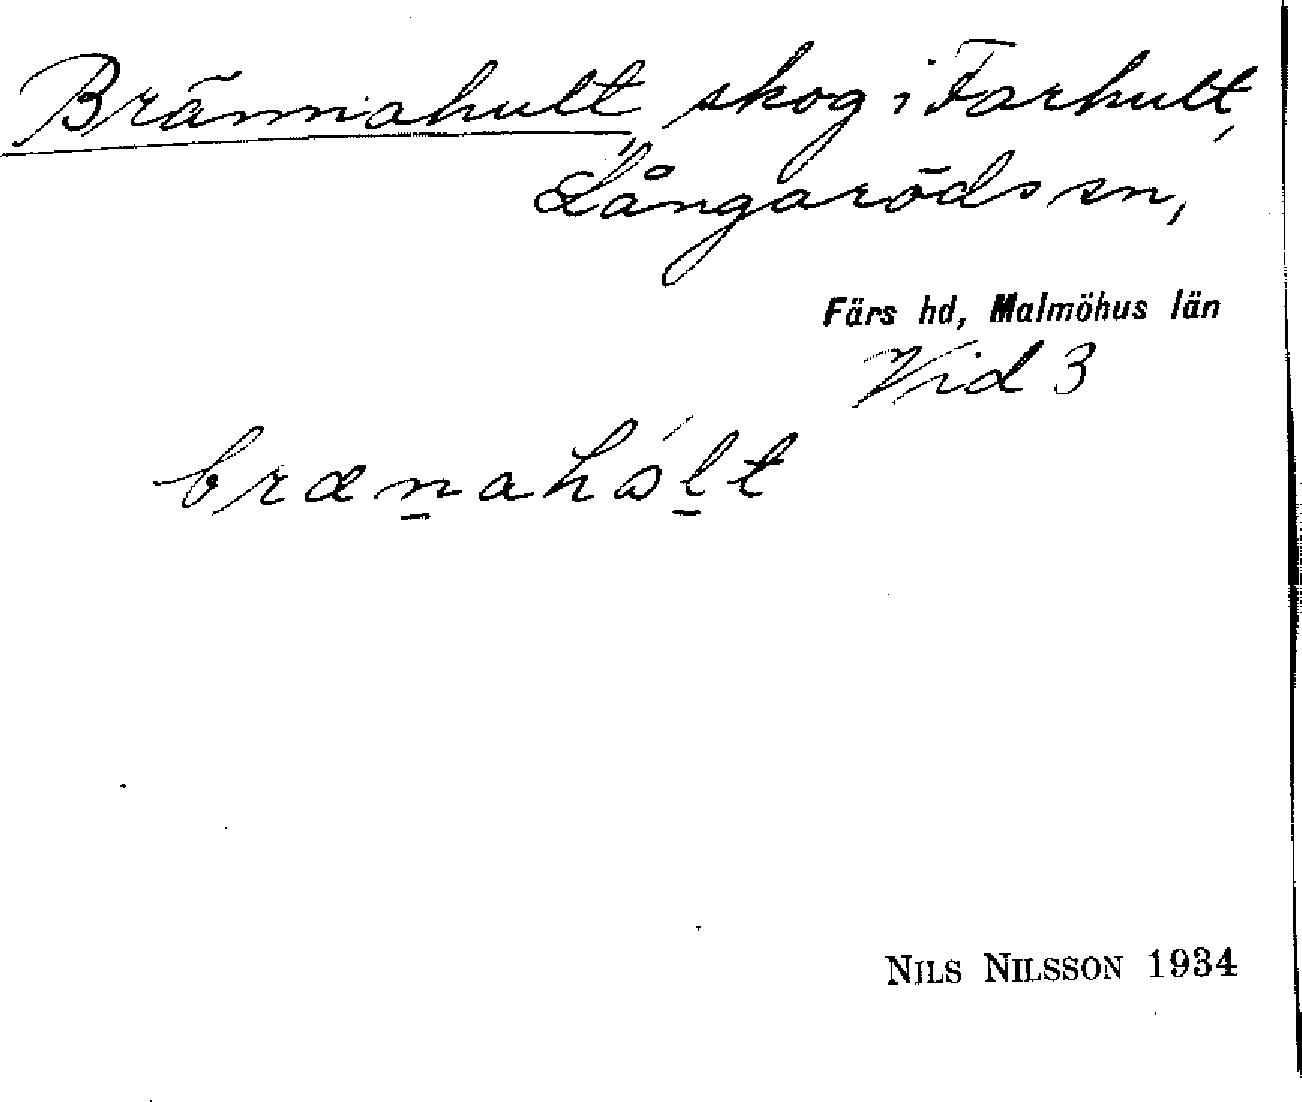 Brännahult, skog i Farhult,
Långaröds sn,
Färs hd, Malmöhus län
Vid 3
brænahålt
NILS NILSSON 1934